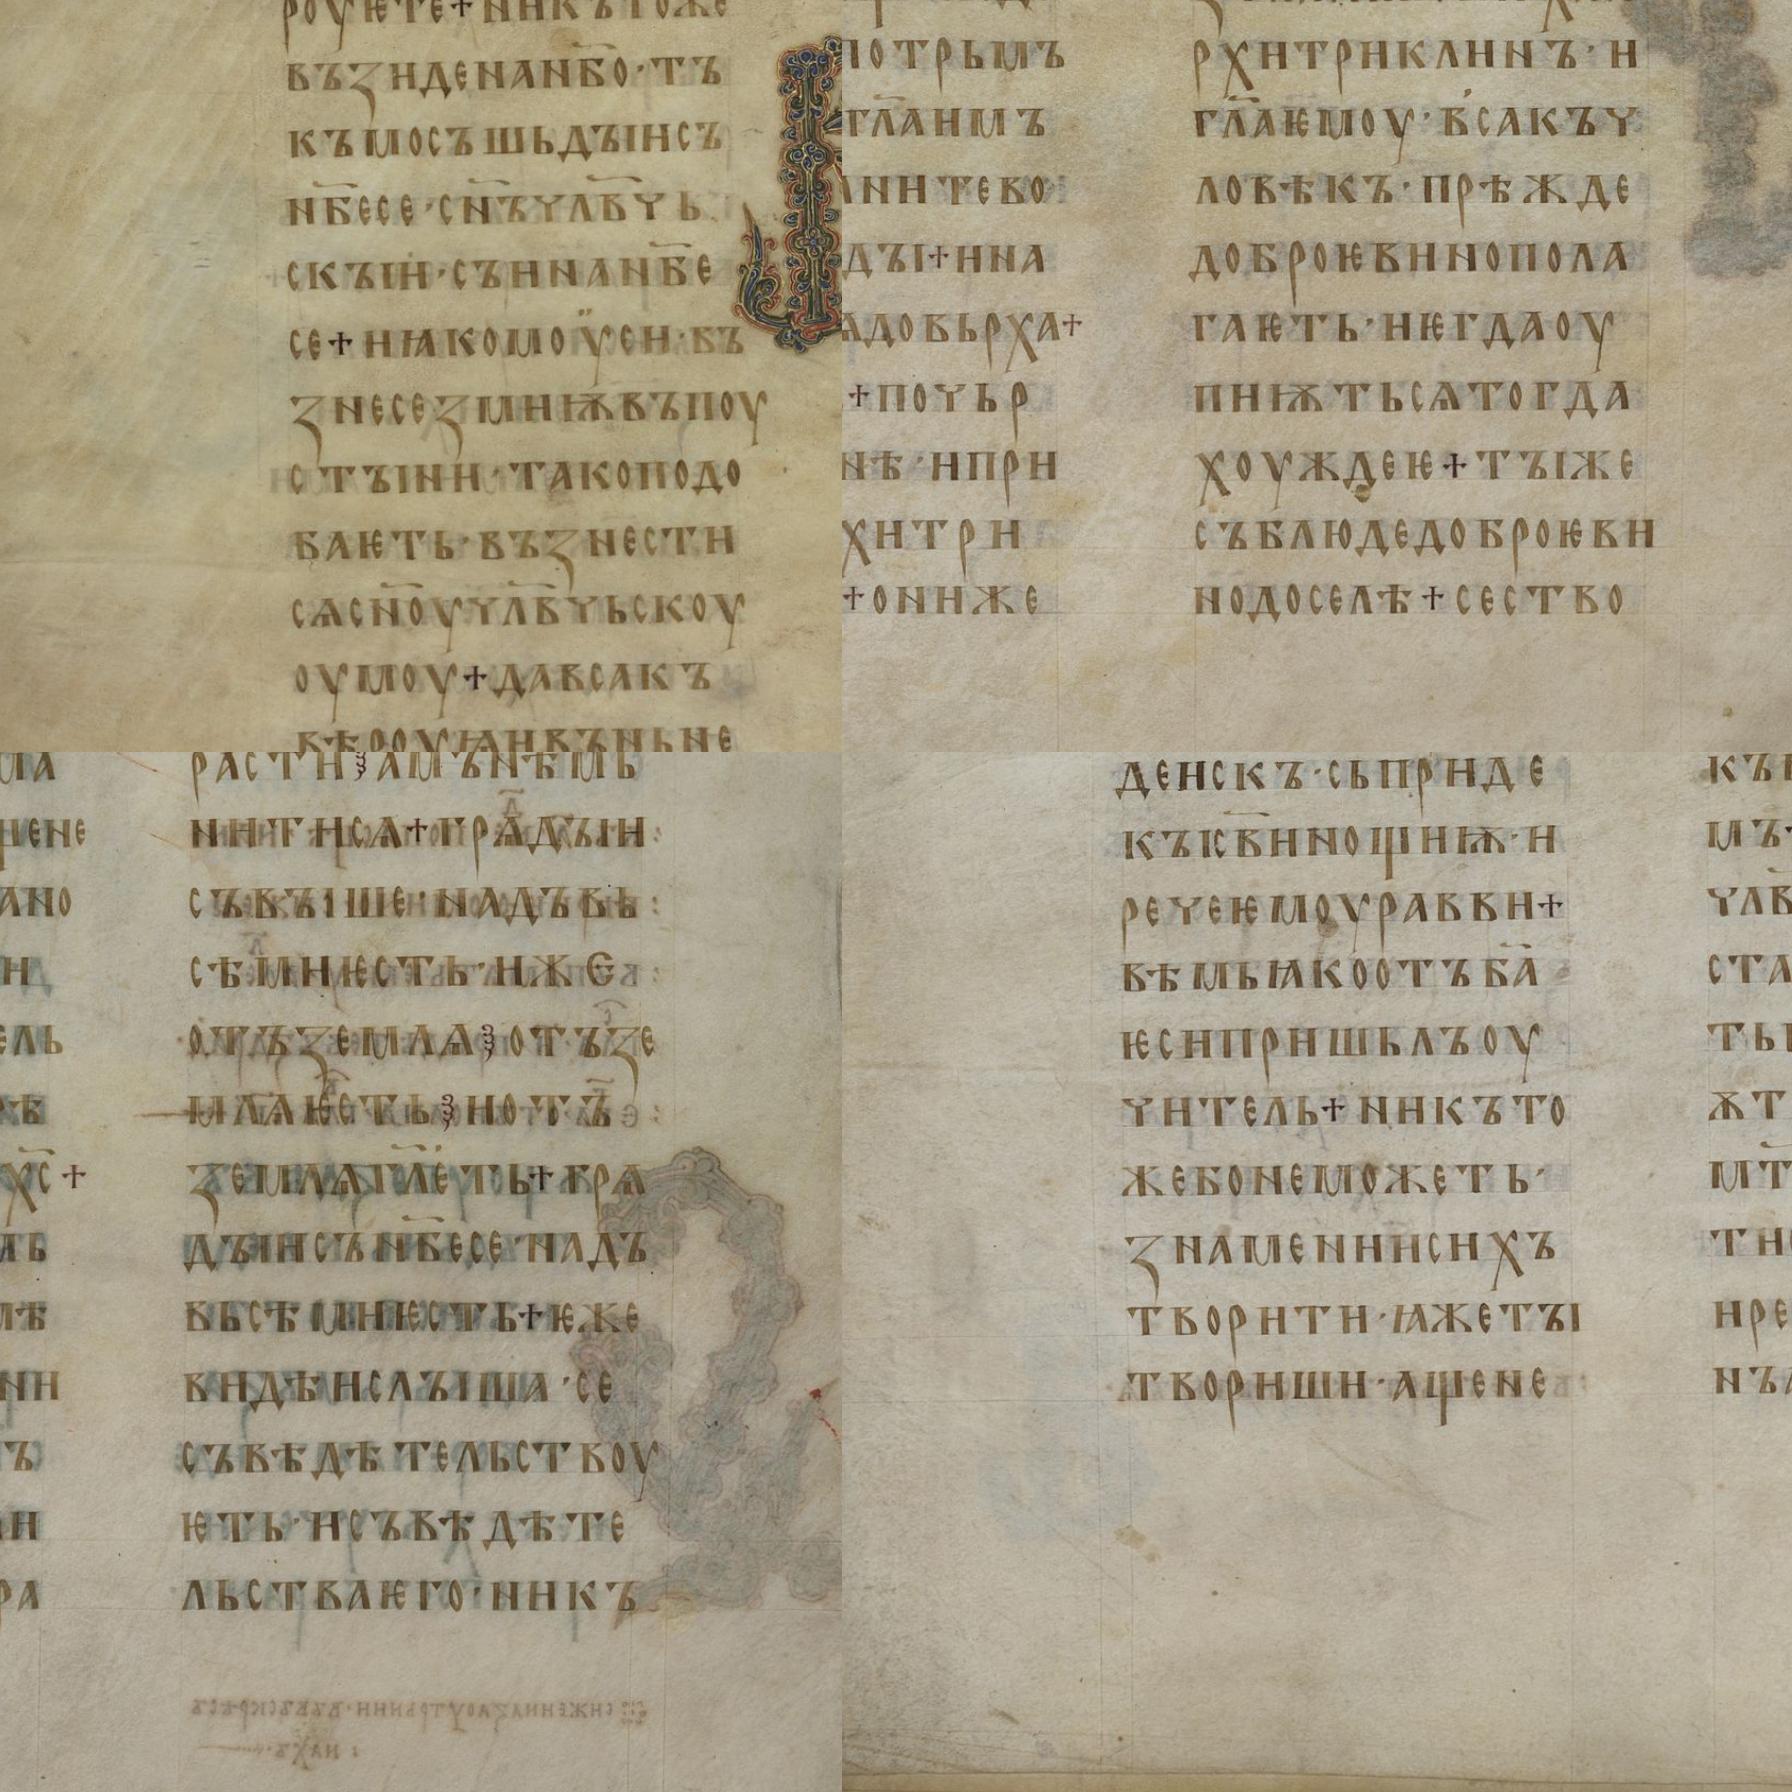 роуѥте+никътоже
възиденанб҃о·тъ
къмосъшьдꙑисъ
нб҃есе·сн҃ъчлб҃чь
скꙑи·сꙑинанб҃е
се+ниꙗкомоӱсеи·въ
знесезмниѭвъпоу
стꙑни·такоподо
баѥть·възнести
сѧсн҃оучлб҃чьскоу
оумоу+давсакъ
вѣроуꙗивъньне
потрьмъ
гл҃аимъ
лнитево
дꙑ+ина
адовьрха+
+почьр
нѣ·ипри
хитри
+онже
рхитриклинъ·и
гл҃аѥмоу·всакъч
ловѣкъ·прѣжде
доброѥвинопола
гаѥть·иѥгдаоу
пиѭтьсѧтогда
хоуждеѥ+тꙑже
съблюдедоброѥви
нодоселѣ+сество
расти·амънѣмь
нитисѧ+грѧдꙑи
съвꙑше·надъвь
сѣмиѥсть·иже
отъземлѧ·отъзе
млѧѥсть·иотъ
землѧгл҃еть+грѧ
дꙑисънб҃есе·надъ
вьсѣмиѥсть+ѥже
видѣислꙑша·се
съвѣдѣтельствоу
ѥть·исъвѣдѣте
льстваѥго·никъ
деискъ·сьприде
къіс҃винощиѭ·и
речеѥмоураввн+
вѣмьꙗкоотъба҃
ѥсипришьлъоу
читель+никъто
жебонеможеть·
знаменииисихъ
творити·ꙗжетꙑ
твориши·ащене